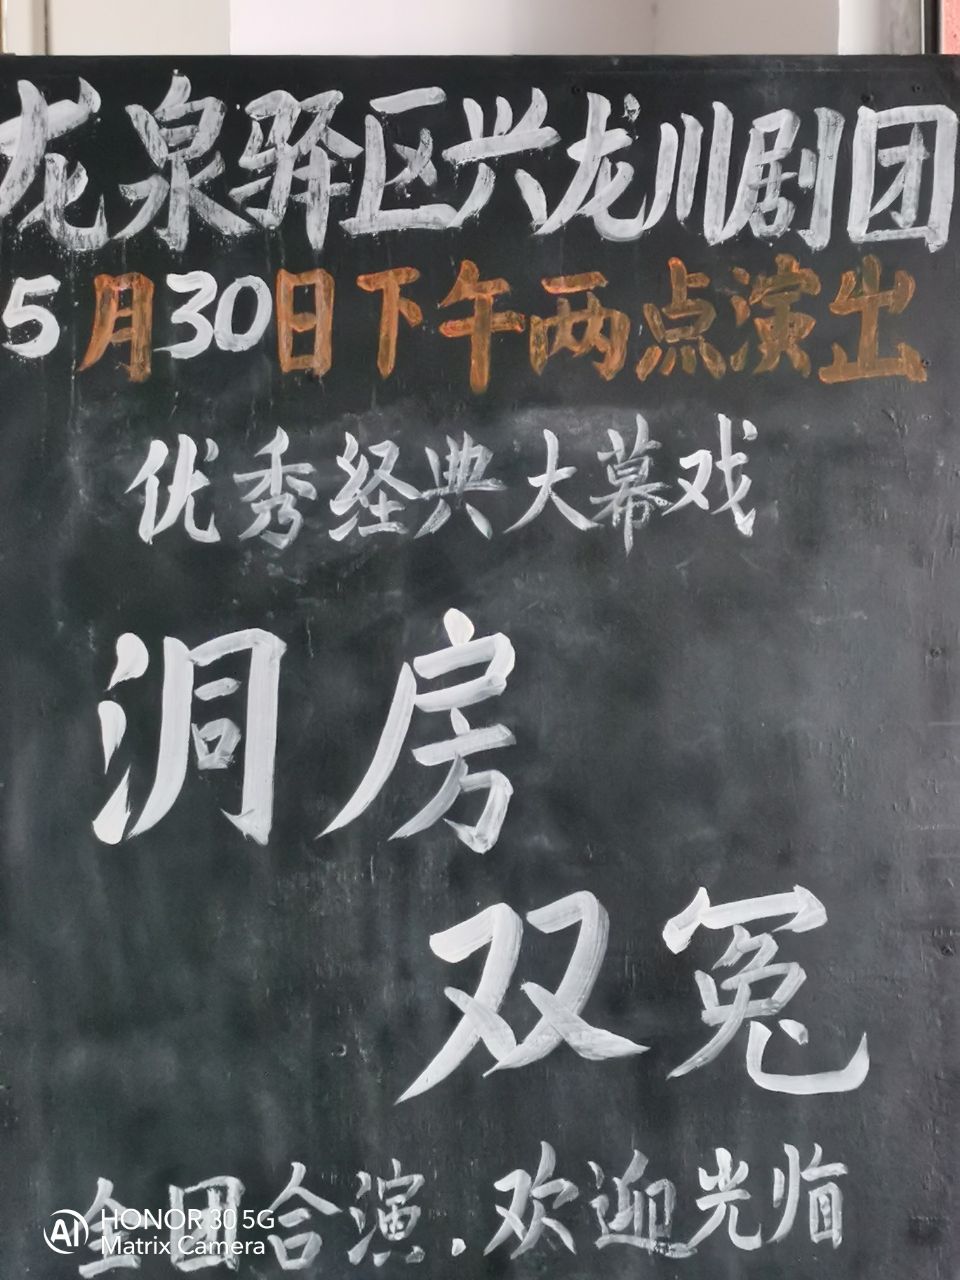 龙泉驿区兴龙川剧团
5月30日下午两点演出
优秀经典大幕戏
洞房
双冤
全团合演.欢迎光临
HONOR 30 5G
Matrix Camera
AI